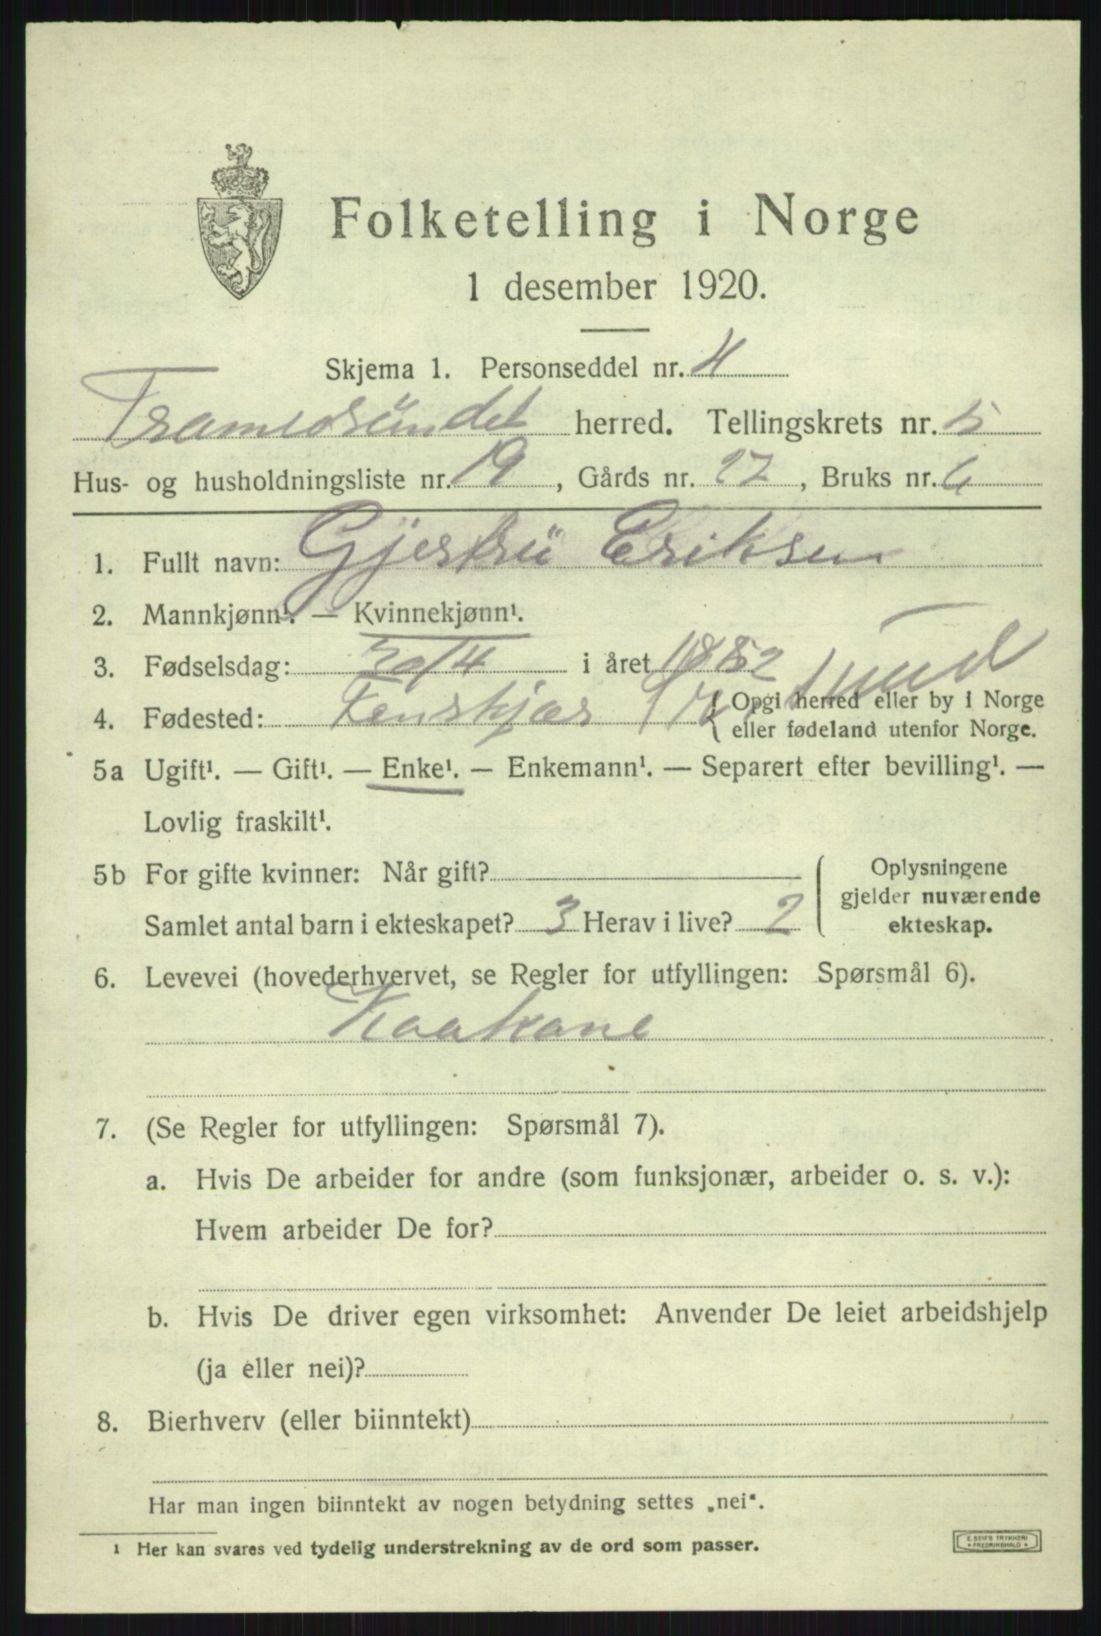 Folketelling i Norge
1 desember 1920.
Skjema 1. Personseddel nr. 4
herred. Tellingskrets nr. 5
Hus- og husholdningsliste nr. 19, Gårds nr. 22, Bruks nr. 6
1. Fullt navn: Gjertrü Eriksen
2. Mannkjønn¹. — Kvinnekjønn¹.
3. Fødselsdag: 30/4 i året 1882
4. Fødested: Opgi herred eller by i Norge
eller fødeland utenfor Norge.
5a Ugift¹. — Gift¹. — Enke¹. — Enkemann¹. — Separert efter bevilling¹. —
Lovlig fraskilt¹.
5b For gifte kvinner: Når gift?
Samlet antal barn i ekteskapet? 3 Herav i live? 2
Oplysningene
gjelder nuværende
ekteskap.
6. Levevei (hovederhvervet, se Regler for utfyllingen: Spørsmål 6).
Kaakone
7. (Se Regler for utfyllingen: Spørsmål 7).
a. Hvis De arbeider for andre (som funksjonær, arbeider o. s. v.):
Hvem arbeider De for?
b. Hvis De driver egen virksomhet: Anvender De leiet arbeidshjelp
(ja eller nei)?
8. Bierhverv (eller biinntekt)
Har man ingen biinntekt av nogen betydning settes „nei“.
¹ Her kan svares ved tydelig understrekning av de ord som passer.
E. SEMS TRYKKERI
• FREDRIKSHALD •